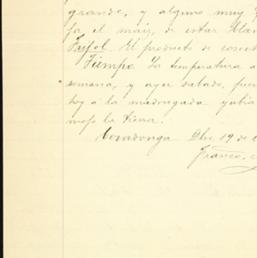 grande, y alguno muy
ja el maiz, de estar blan
Frijol. El producto de cosech
Tiempo. La temperatura a
semana, y ayer sabado, fue
hoy á la madrugada
mojó la tierra.
Covadonga Dbre 19 de
Franco. C